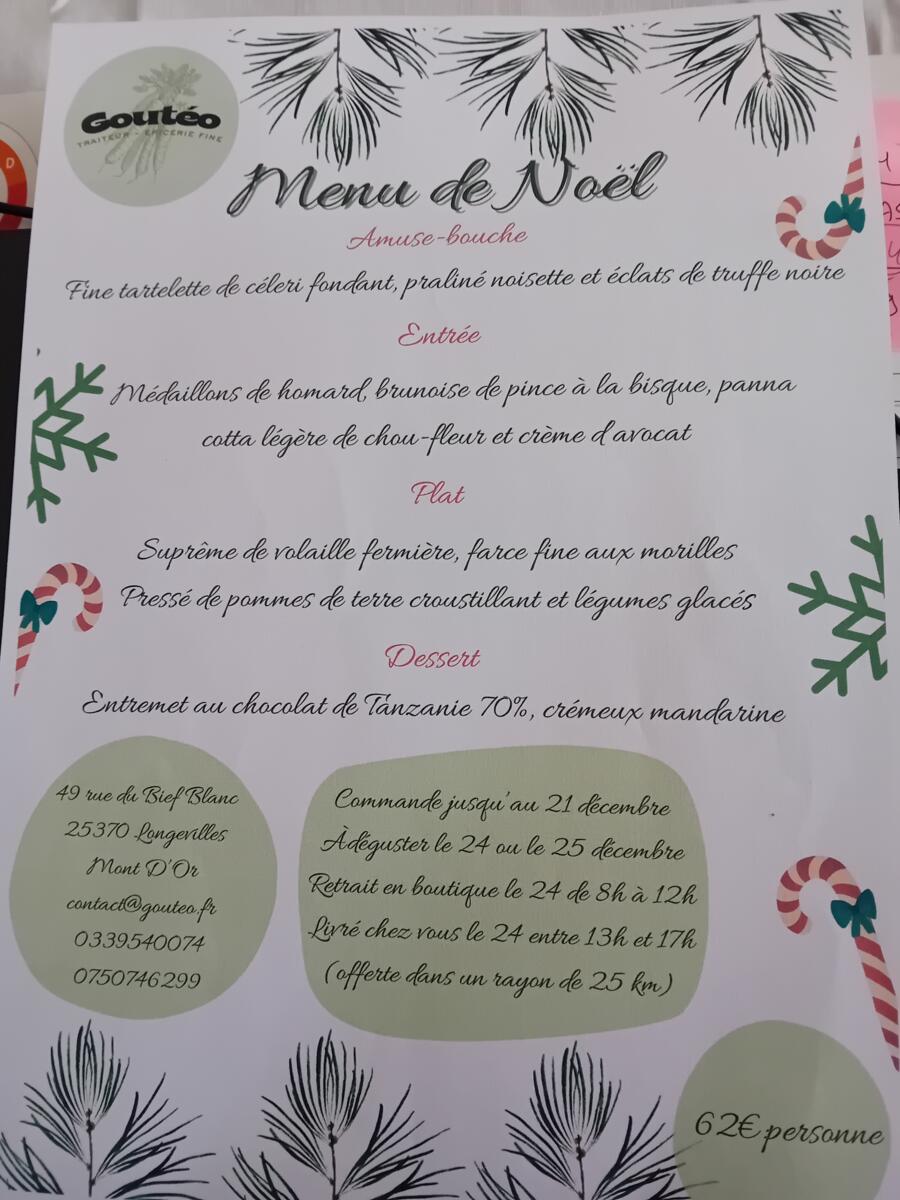 Goutéo
TRAITEUR - ÉPICERIE FINE
Menu de Noël
Amuse-bouche
Fine tartelette de céleri fondant, praliné noisette et éclats de truffe noire
Entrée
Médaillons de homard, brunoise de pince à la bisque, panna
cotta légère de chou-fleur et crème d'avocat
Plat
Suprême de volaille fermière, farce fine aux morilles
Pressé de pommes de terre croustillant et légumes glacés
Dessert
Entremet au chocolat de Tanzanie 70%, crémeux mandarine
49 rue du Bief Blanc
25370 Longevilles
Mont D'Or
contact@gouteo.fr
0339540074
0750746299
Commande jusqu'au 21 décembre
À déguster le 24 ou le 25 décembre
Retrait en boutique le 24 de 8h à 12h
Livré chez vous le 24 entre 13h et 17h
(offerte dans un rayon de 25 km)
62€ personne
D